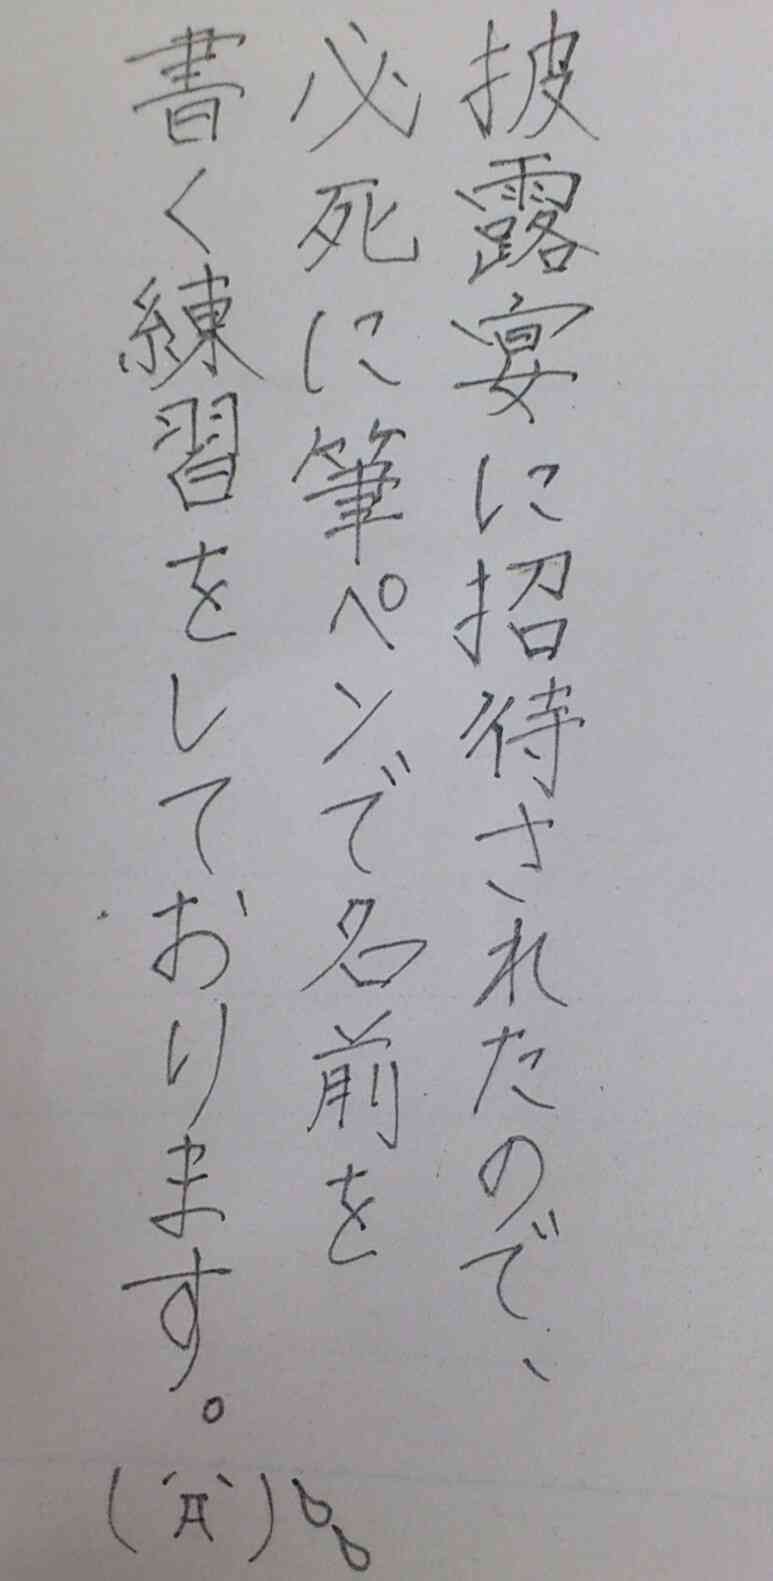 披露宴に招待されたので、
必死に筆ペンで名前を
書く練習をしております。
(´Д`)